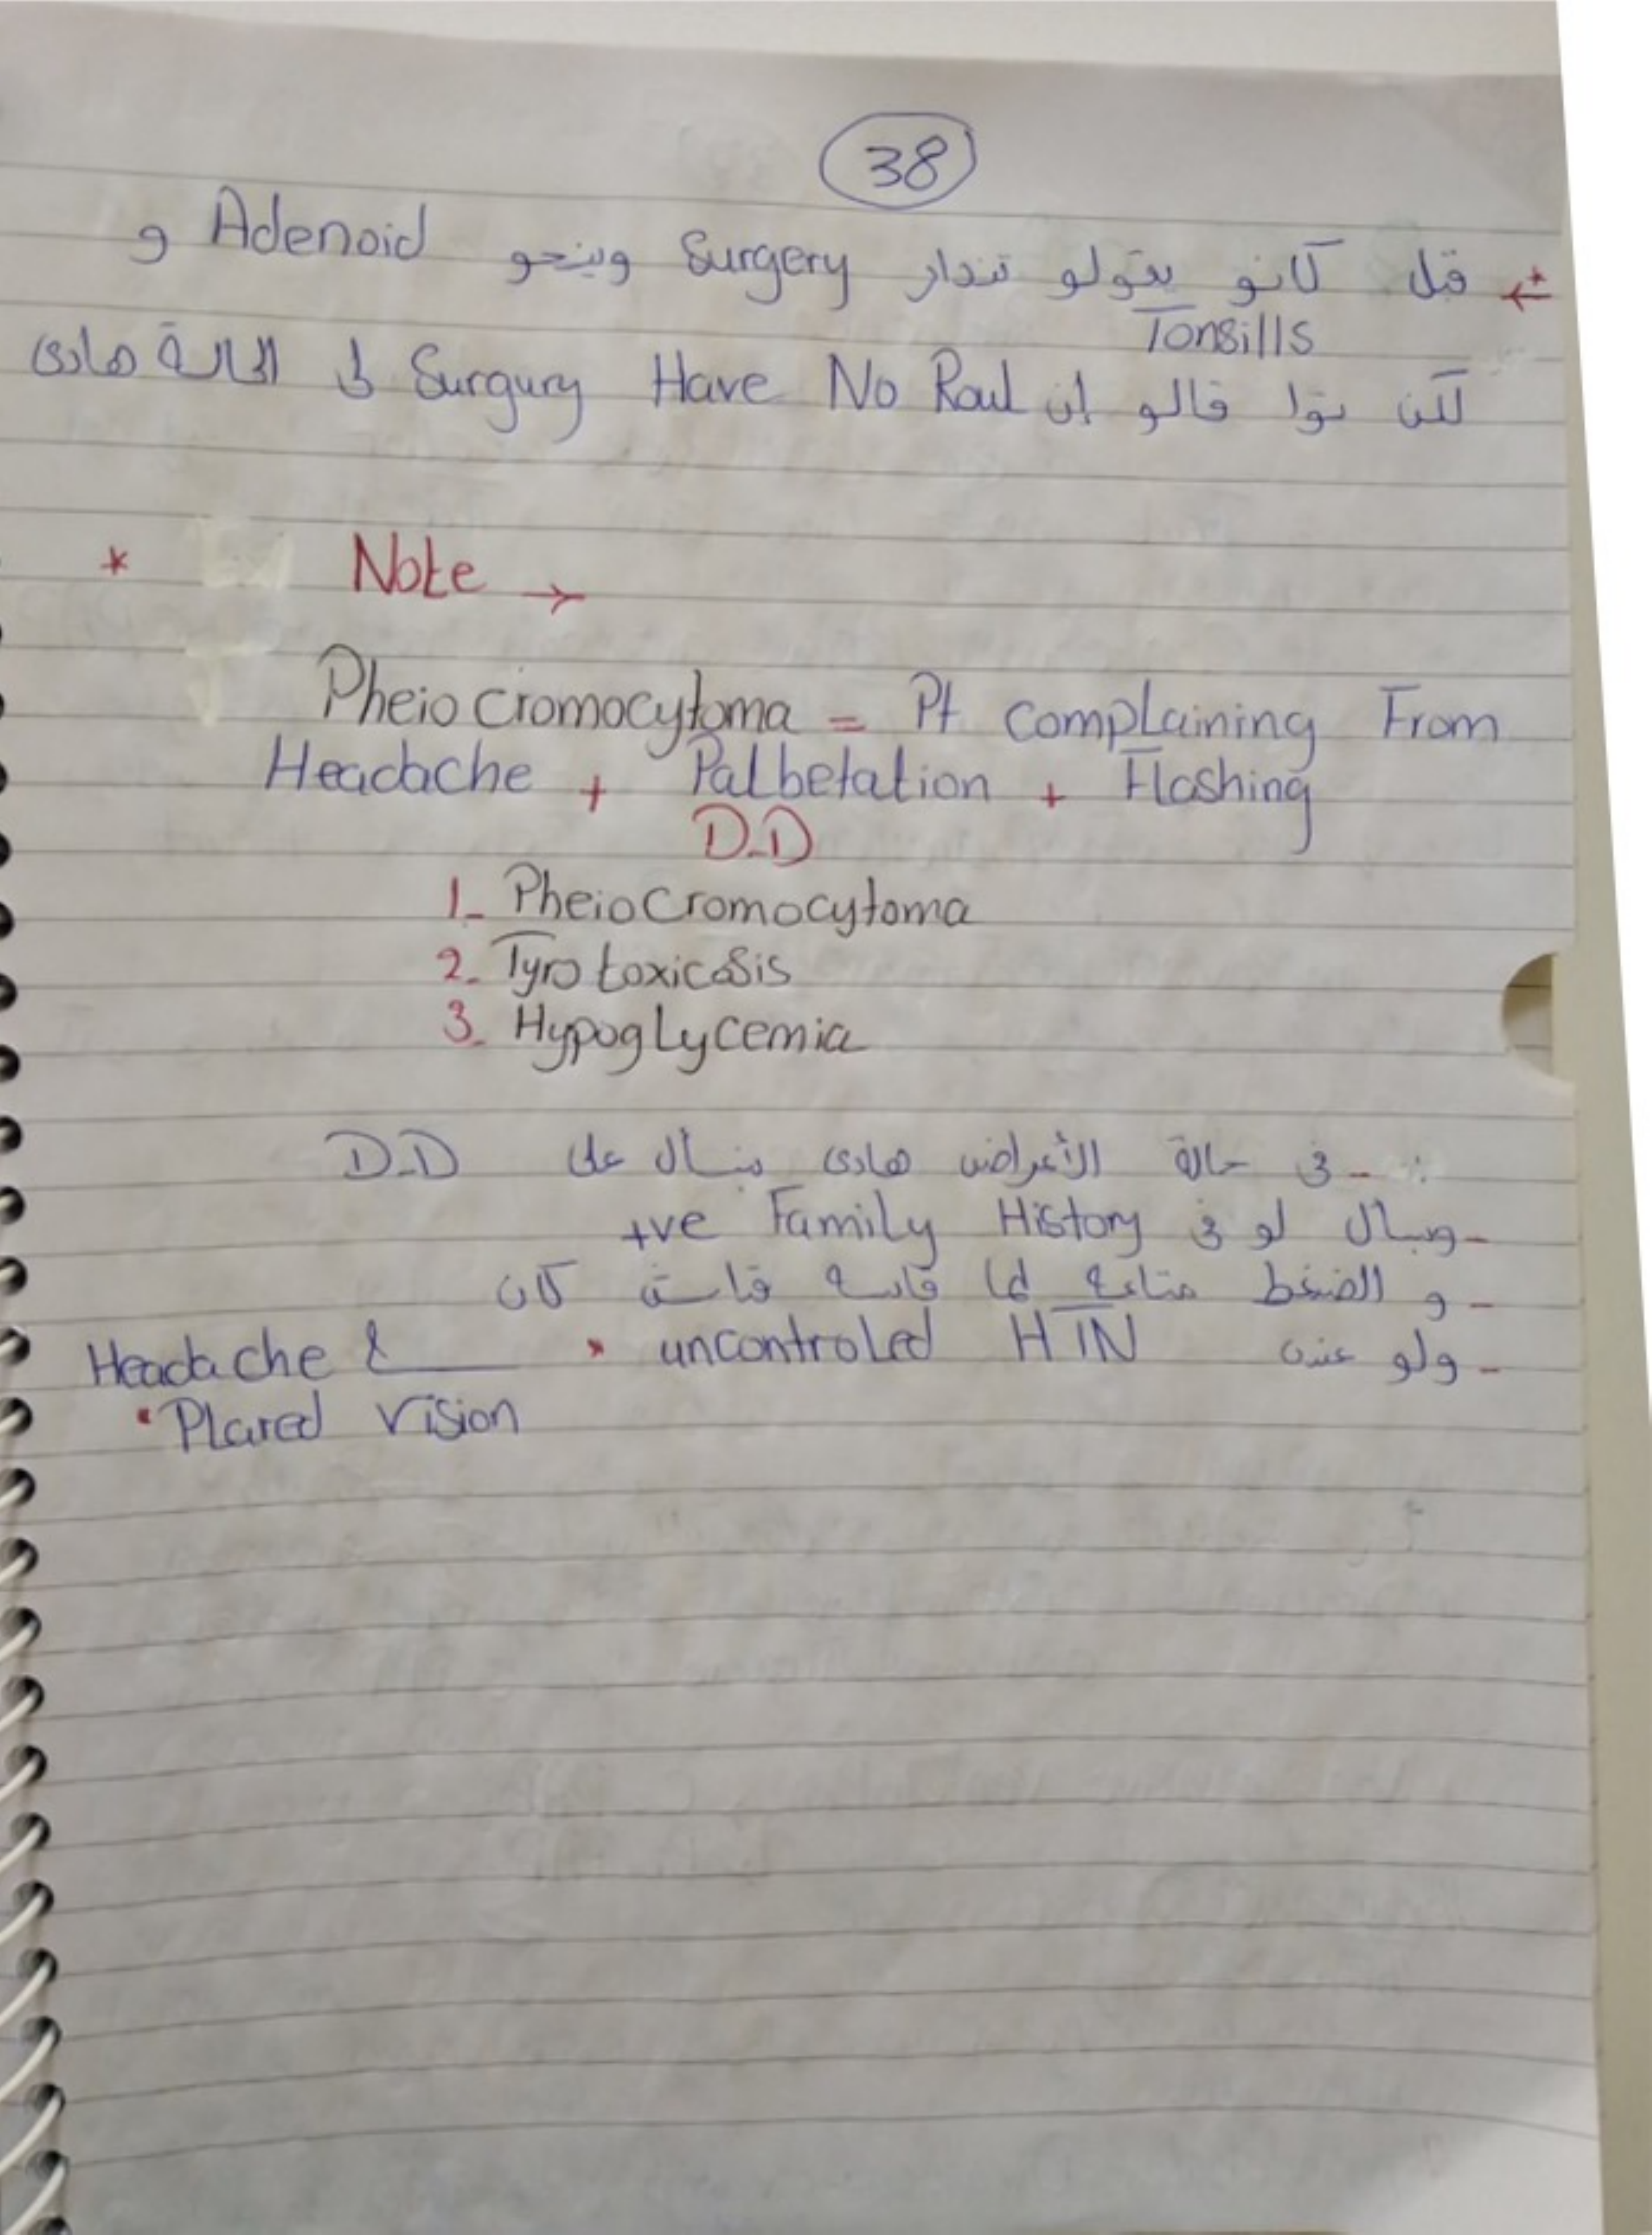 38
قبل كانو يقولو تندار Surgery وينحو Adenoid و
Tonsills
لكن توا قالو إن Surgury Have No Roul في الحالة هادي
* Note →
Pheio cromocytoma = Pt complaining From
Headache + Palbetation + Flashing
D.D
1_ Pheiocromocytoma
2_ Tyrotoxicosis
3_ Hypoglycemia
- في حالة الأعراض هادي نسأل على D.D
- ونسأل لو في Family History +ve
- و الضغط متاعه لما قاسه قداش كان
- ولو عنده uncontroled HTN • Headache &
• Plared vision